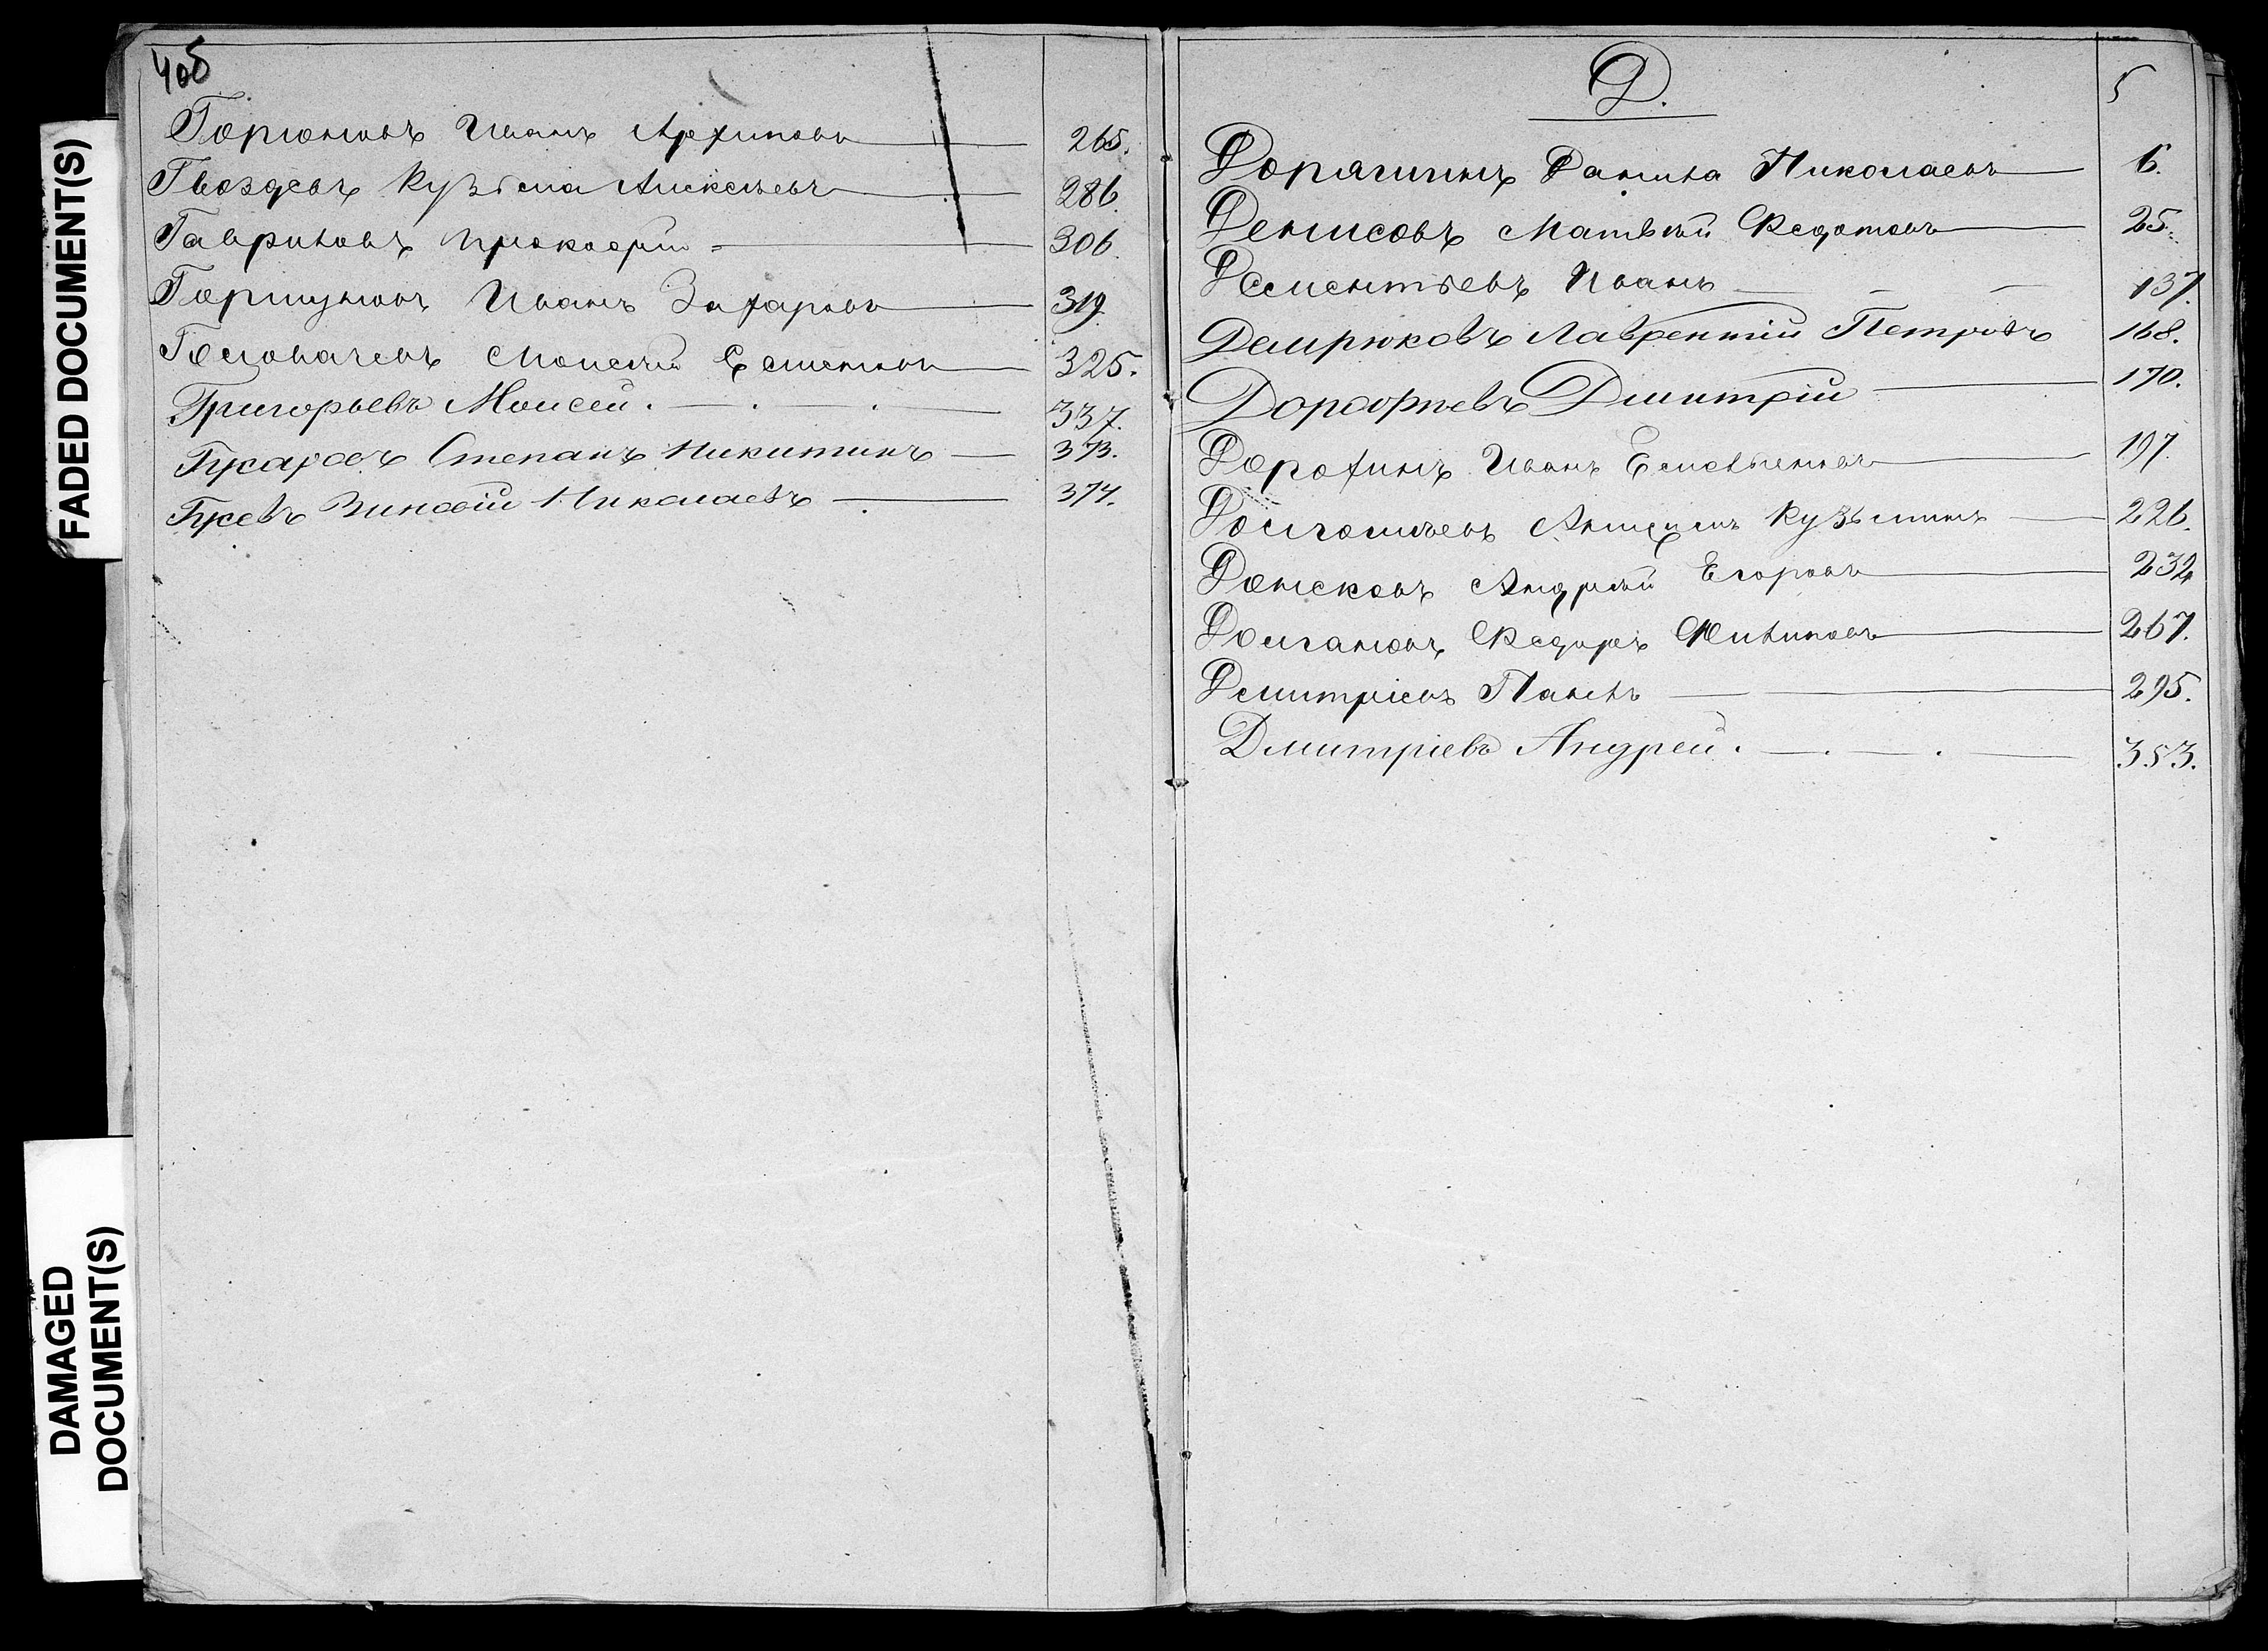 4об
Горюновъ Иванъ Архиповъ 265.
Гвоздевъ Кузьма Алексѣевъ 286.
Гавриловъ Прокофій 306.
Горшуновъ Иванъ Захаровъ 319.
Головачевъ Моисей Семеновъ 325.
Григорьевъ Моисей. 337.
Гусаровъ Степанъ Никитинъ 373.
Гусевъ Зиновій Николаевъ 374.
Д.
5
Доращинъ Данила Николаевъ 6.
Денисовъ Матвѣй Федотовъ 25.
Дементьевъ Иванъ 137.
Демрюковъ Лаврентій Петровъ 168.
Дорофѣевъ Дмитрій 170.
Дорохинъ Иванъ Емельяновъ 197.
Долгошеевъ Кузьминъ 226.
Донсковъ Андрей Егоровъ 232
Долгановъ Федоръ Филиповъ 267.
Дмитріевъ Павелъ 295.
Дмитріевъ Андрей. 353.
FADED DOCUMENT(S)
DAMAGED
DOCUMENT(S)